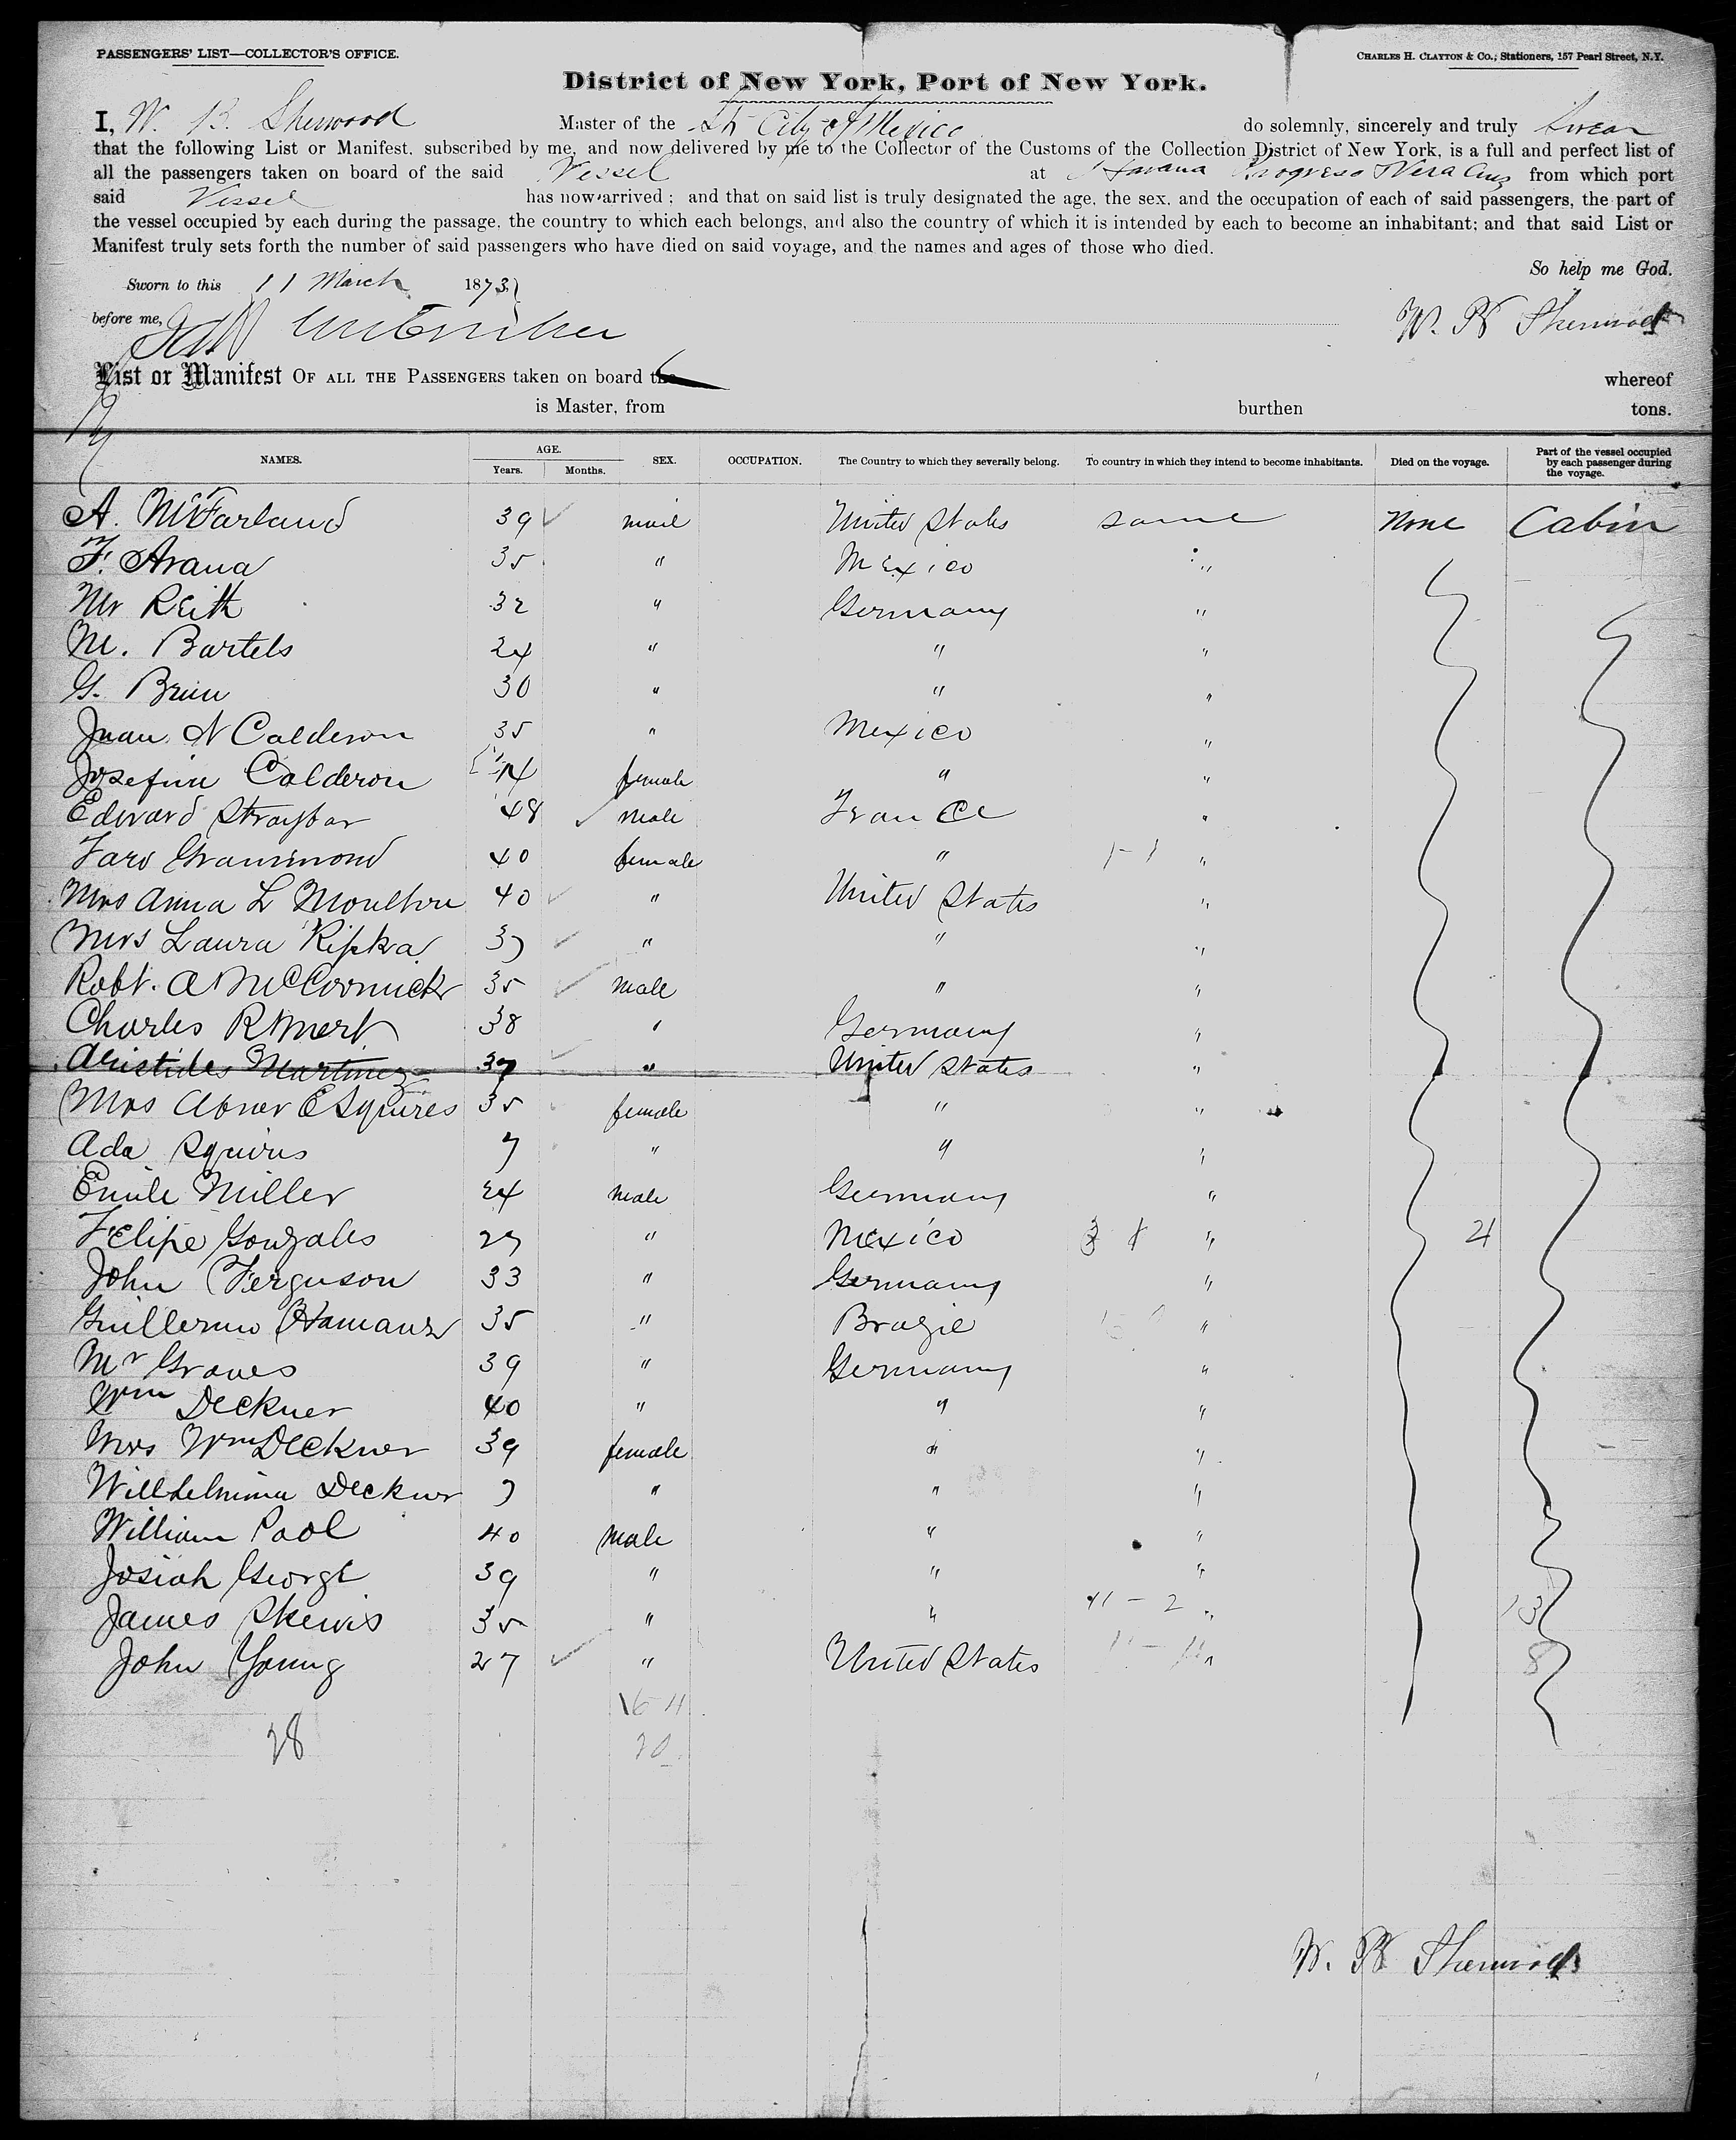 PASSENGERS' LIST—COLLECTOR'S OFFICE.
CHARLES H. CLAYTON & Co., Stationers, 157 Pearl Street, N.Y.
District of New York, Port of New York.
I, W. B. Sherwood Master of the Str City of Mexico do solemnly, sincerely and truly swear
that the following List or Manifest, subscribed by me, and now delivered by me to the Collector of the Customs of the Collection District of New York, is a full and perfect list of
all the passengers taken on board of the said Vessel at Havana Progreso & Vera Cruz from which port
said Vessel has now arrived; and that on said list is truly designated the age, the sex, and the occupation of each of said passengers, the part of
the vessel occupied by each during the passage, the country to which each belongs, and also the country of which it is intended by each to become an inhabitant; and that said List or
Manifest truly sets forth the number of said passengers who have died on said voyage, and the names and ages of those who died.
So help me God.
Sworn to this 11 March 1873
before me,
W. B Sherwood
List or Manifest OF ALL THE PASSENGERS taken on board the whereof
is Master, from burthen tons.
NAMES. AGE. Years. Months. SEX. OCCUPATION. The Country to which they severally belong. To country in which they intend to become inhabitants. Died on the voyage. Part of the vessel occupied by each passenger during the voyage.
A. McFarland 39 mail United States same None Cabin
F. Arana 35 " Mexico "
Mr Reith 32 " Germany "
M. Bartels 24 " " "
G. Brun 30 " " "
Juan N Calderon 35 " Mexico "
Josefina Calderon 14 female " "
Edward Straybar 48 Male France "
Faro Grammond 40 female " 1-1 "
Mrs Anna L Moulton 40 " United States "
Mrs Laura Ripka 37 " " "
Robt. A McCormick 35 Male " "
Charles Rimert 38 " Germany "
Aristides Martinez 37 " United States "
Mrs Abner E Squires 35 female " "
Ada Squires 7 " " "
Emile Miller 24 Male Germany "
Felipe Gonzales 27 " Mexico 3 1 " 21
John Ferguson 33 " Germany "
Guillermo Hamann 35 " Brazil "
Mr Graves 39 " Germany "
Wm Deckner 40 " " "
Mrs Wm Deckner 39 female " "
Willhelmina Deckner 7 " " "
William Pool 40 Male " "
Josiah George 39 " " "
James Skewis 35 " " 11-2 " 13
John Young 27 " United States 11-11 " 8
16 4
28 20
W. B Sherwood